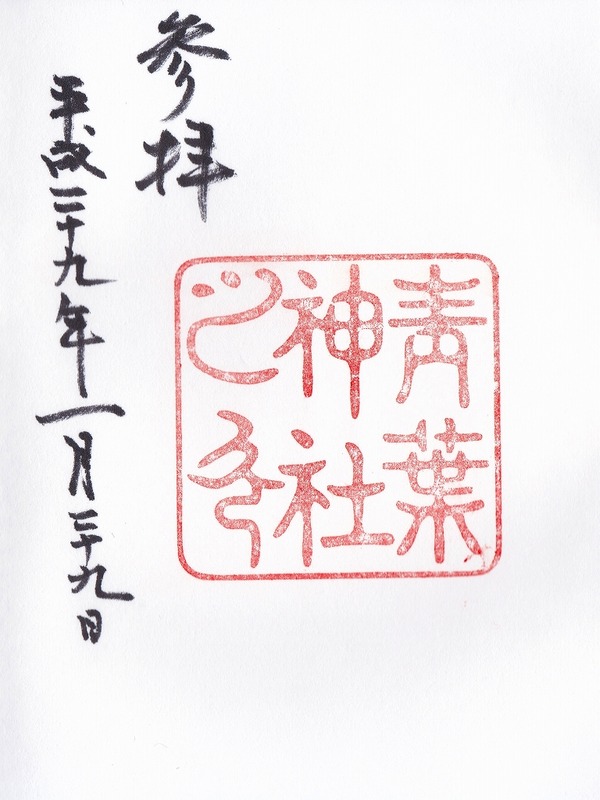 青葉
神社
参拝
平成二十九年一月二十九日